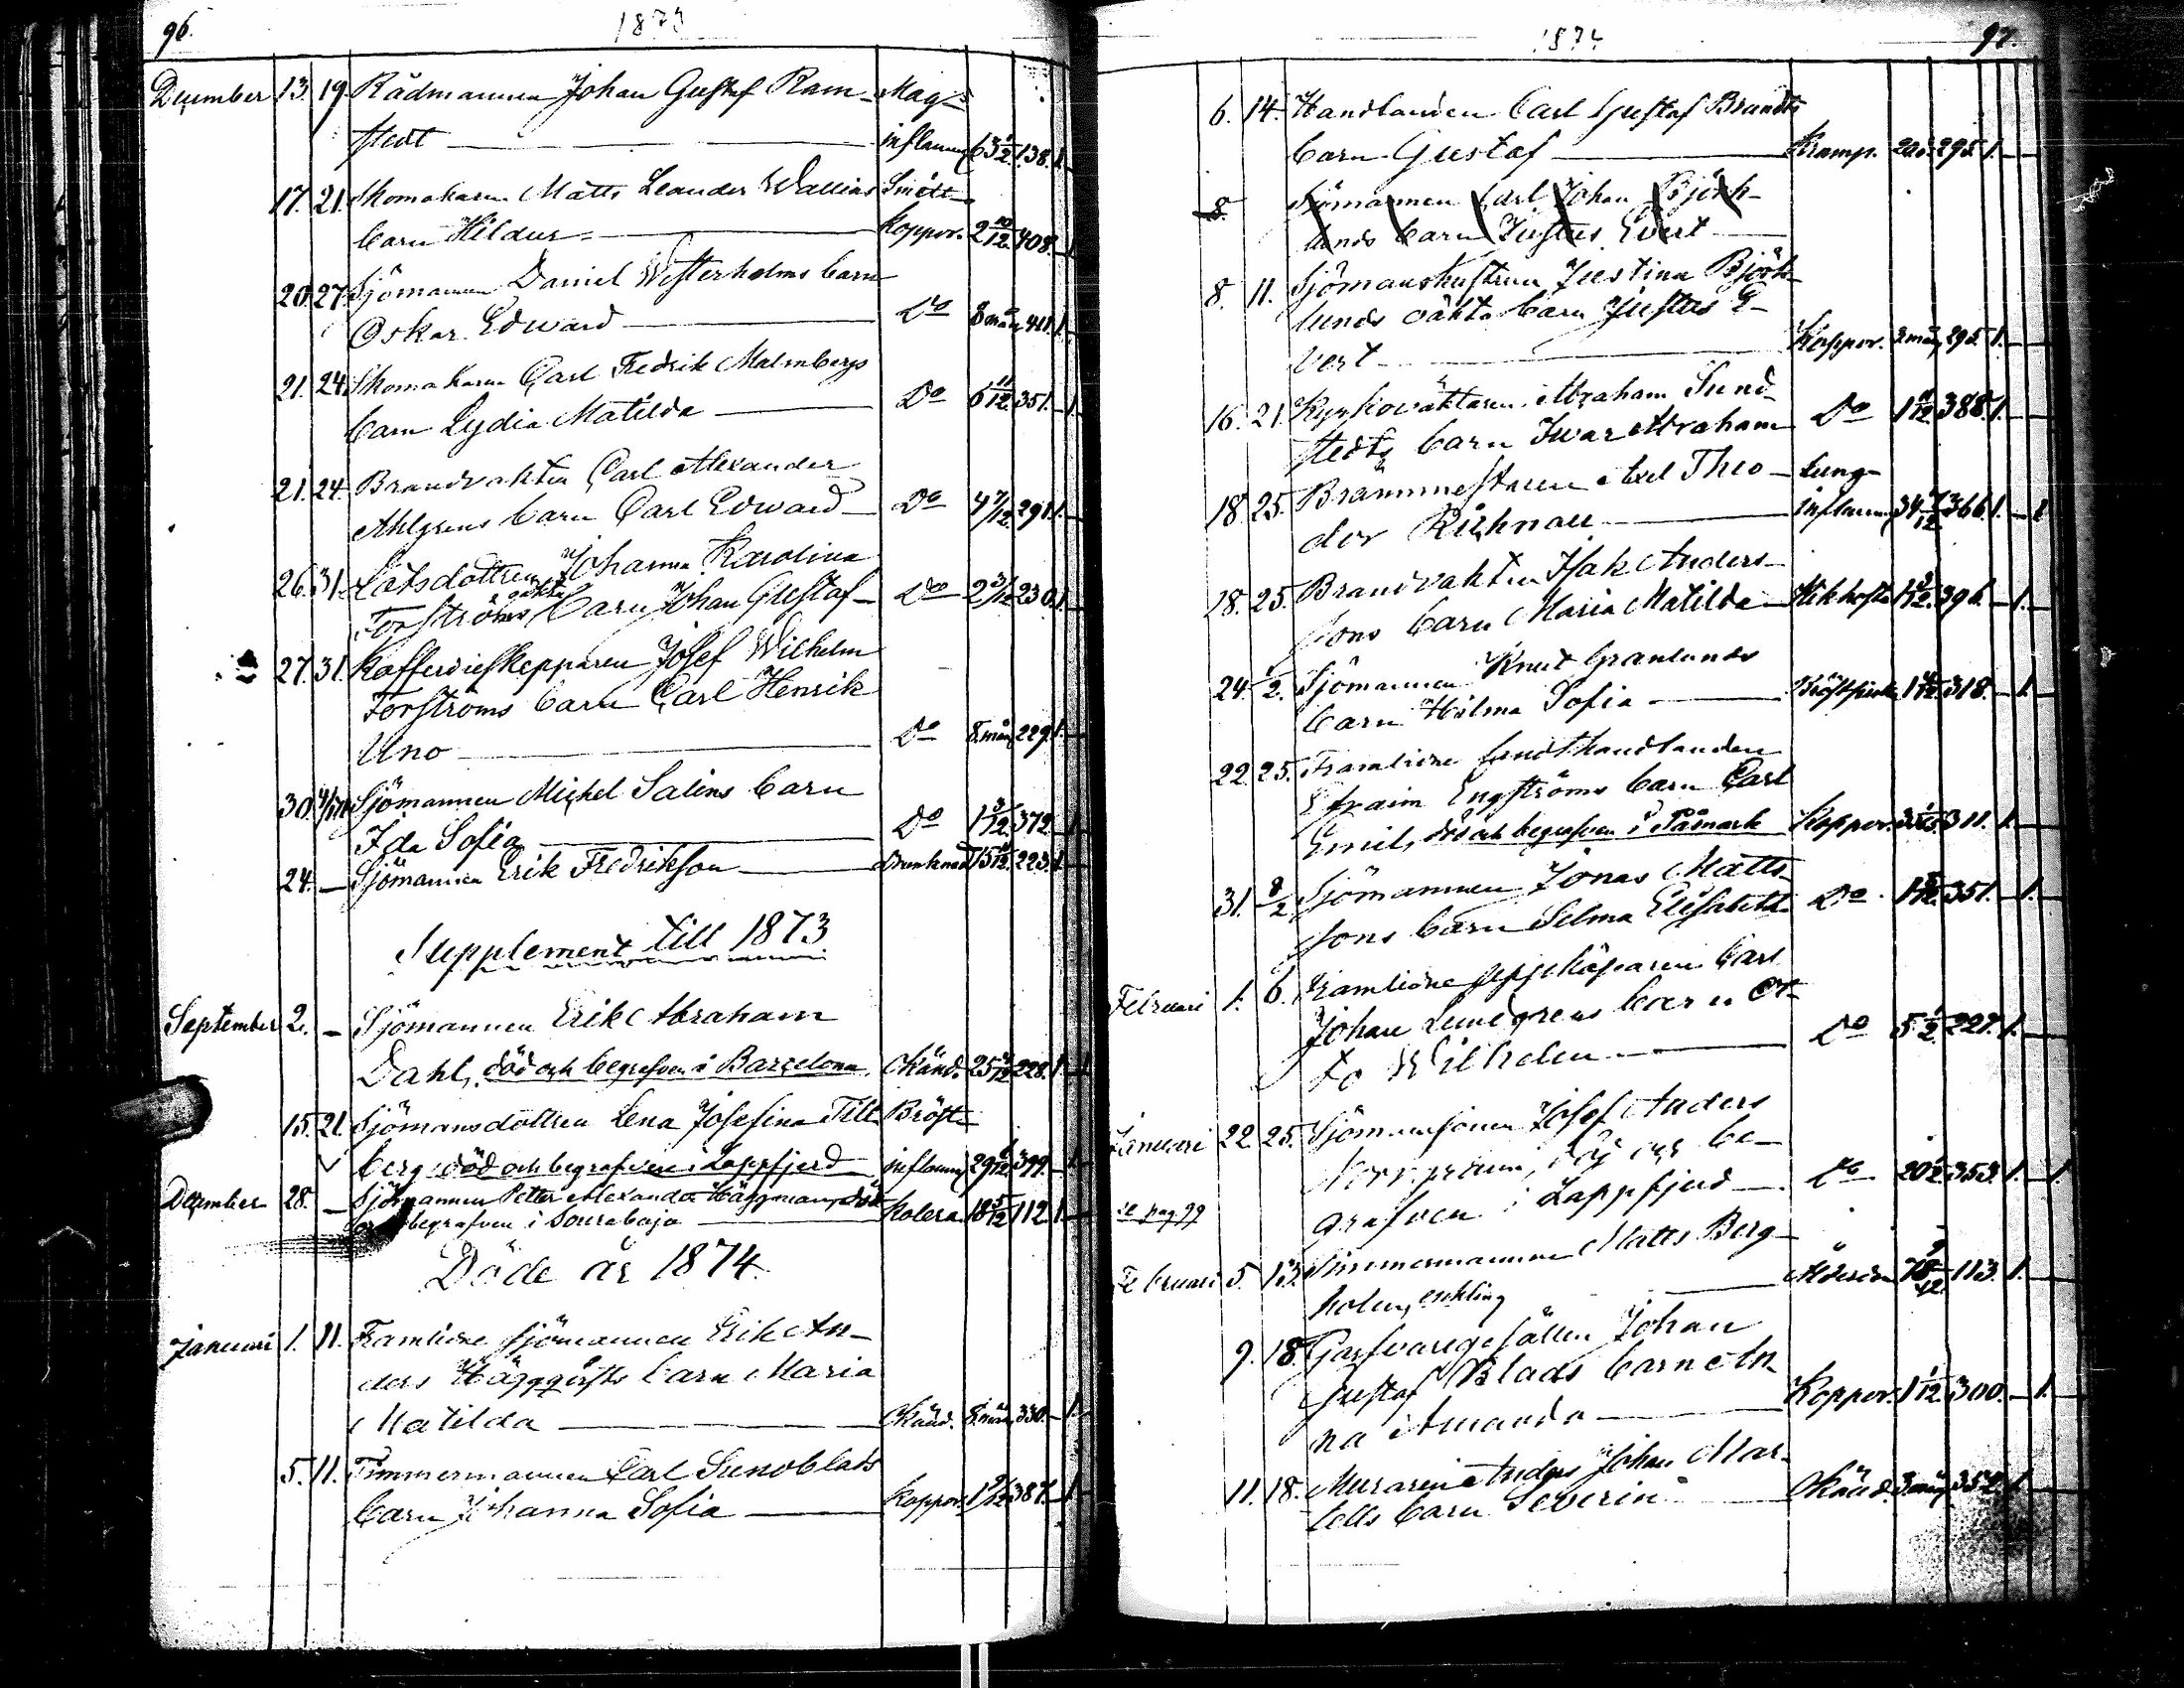 96.
1873
December 13. 19. Rådmannen Johan Gustaf Ram- Mag-
stedt inflamm. 63 1/2 138. 1.
17. 21. Skomakaren Matts Leander Wallins Smått-
barn Hildur koppor. 2 10/12 408. 1
20. 27. Sjömannen Daniel Westerholms barn
Oskar Edward Do 8 mån. 411. 1.
21. 24. Skomakaren Carl Fredrik Malmbergs
barn Lydia Matilda Do 6 11/12 351. 1.
21. 24. Brandvakten Carl Alexander
Ahlgrens barn Carl Edward Do 4 7/12 291. 1.
26. 31. Lotsdottren Johanna Karolina
Forströms oäkta barn Johan Gustaf Do 2 3/12 230. 1.
27. 31. Kofferdieskepparen Josef Wilhelm
Forströms barn Carl Henrik
Uno Do 8 mån. 229. 1.
30. Sjömannen Michel Salins barn
Ida Sofia Do 1 3/12 372. 1.
24. — Sjömannen Erik Fredrikson Drunknad 223. 1.
Supplement till 1873
September 2. — Sjömannen Erik Abraham
Dahl, död och begrafven i Barcelona. Okänd. 228. 1.
15. 21. Sjömansdottren Lena Josefina Till- Bröst-
berg död och begrafven i Lappfjerd inflamm. 399. 1.
December 28. — Sjömannen Petter Alexander Häggman, död
och begrafven i Sourabaja kolera 18 5/12 112. 1.
Döde år 1874.
Januari 1. 11. Framlidne sjömannen Erik An-
ders Häggqvists barn Maria
Matilda Okänd. 8 mån. 330. 1.
5. 11. Timmermannen Carl Sundblads
barn Johanna Sofia koppor. 387. 1.
1874
97.
6. 14. Handlanden Carl Gustaf Brandts
barn Gustaf Kramp. 295. 1.
8. Sjömannen Carl Johan Björk-
lunds barn Justus Evert
8. 11. Sjömanshustrun Justina Björk-
lunds oäkta barn Justus E-
vert Koppor. 3 mån. 295. 1.
16. 21. Kyrkovaktaren Abraham Sund-
stedts barn Ivar Abraham Do 388. 1.
18. 25. Brännmästaren Axel Theo- Lung-
dor Richnau inflamm. 366. 1.
18. 25. Brandvakten Isak Anders-
sons barn Maria Matilda Kikhosta 396. 1.
24. 1/2. Sjömannen Knut Granlunds
barn Hilma Sofia 318. 1.
22. 25. Framlidne landthandlanden
Efraim Engströms barn Carl
Emil, död och begrafven i Påmark Koppor. 311. 1.
31. 8/2 Sjömannen Jonas Matts-
sons barn Selma Elisabeth Do 351. 1.
Februari 1. 6. Framlidne uppköparen Carl
Johan Lundgrens barn Ot-
to Wilhelm Do 5 1/2 227. 1.
Januari 22. 25. Sjömanssonen Josef Anders
be-
grafven i Lappfjerd Do 353. 1.
se pag. 99
Februari 5. 13. Timmermannen Matts Berg-
holm, enkling Ålderdom 113. 1.
9. 18. Garfvaregesällen Johan
Gustaf Blads barn An-
na Amanda Koppor. 1 1/12 300. 1.
11. 18. Muraren Anders Johan Mar-
tells barn Severin Okänd. 3 mån. 352. 1.